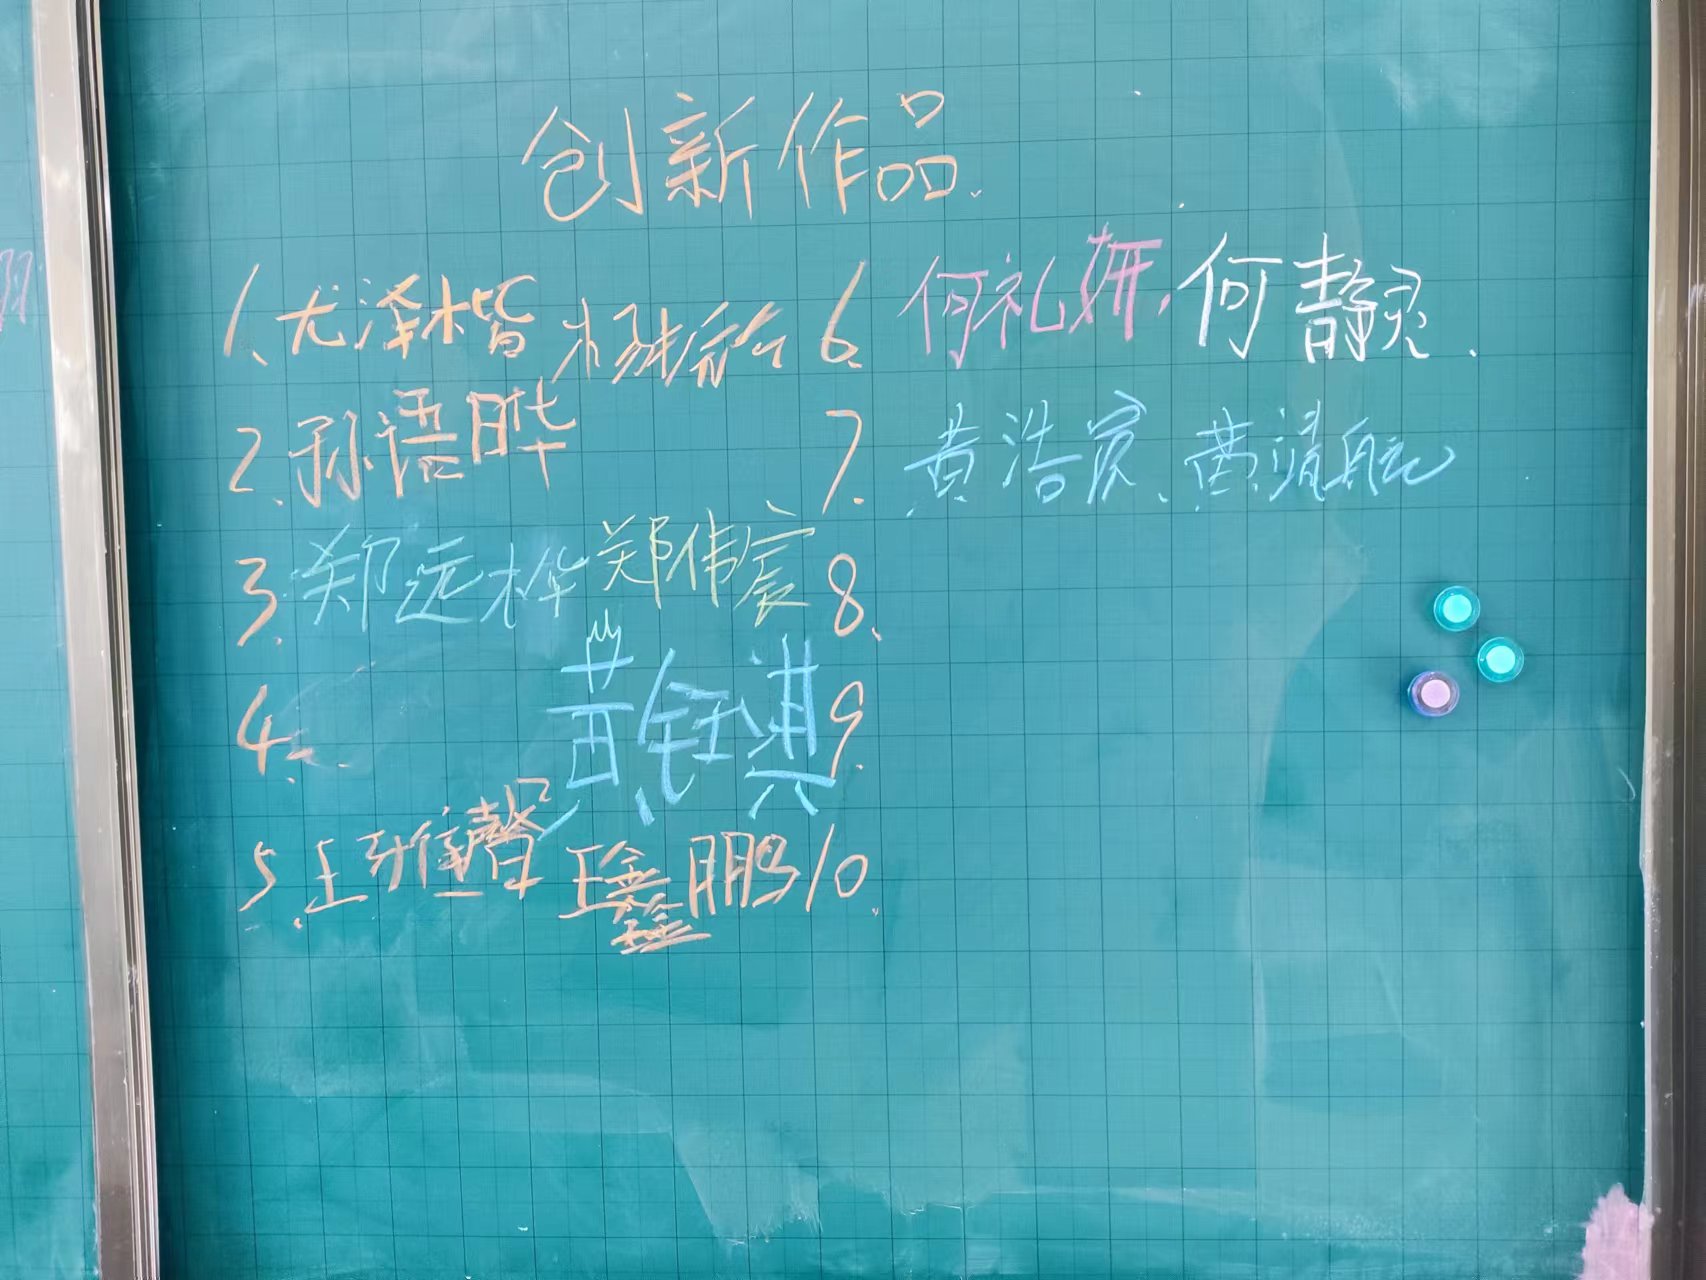 创新作品.
1、尤泽楷
2、孙语晔
3、郑远桦 郑伟宸
4、 黄钰淇
5、王雅馨 王鑫鹏
6、何礼妍，何静灵.
7、黄浩宸、黄清航
8、
9、
10、